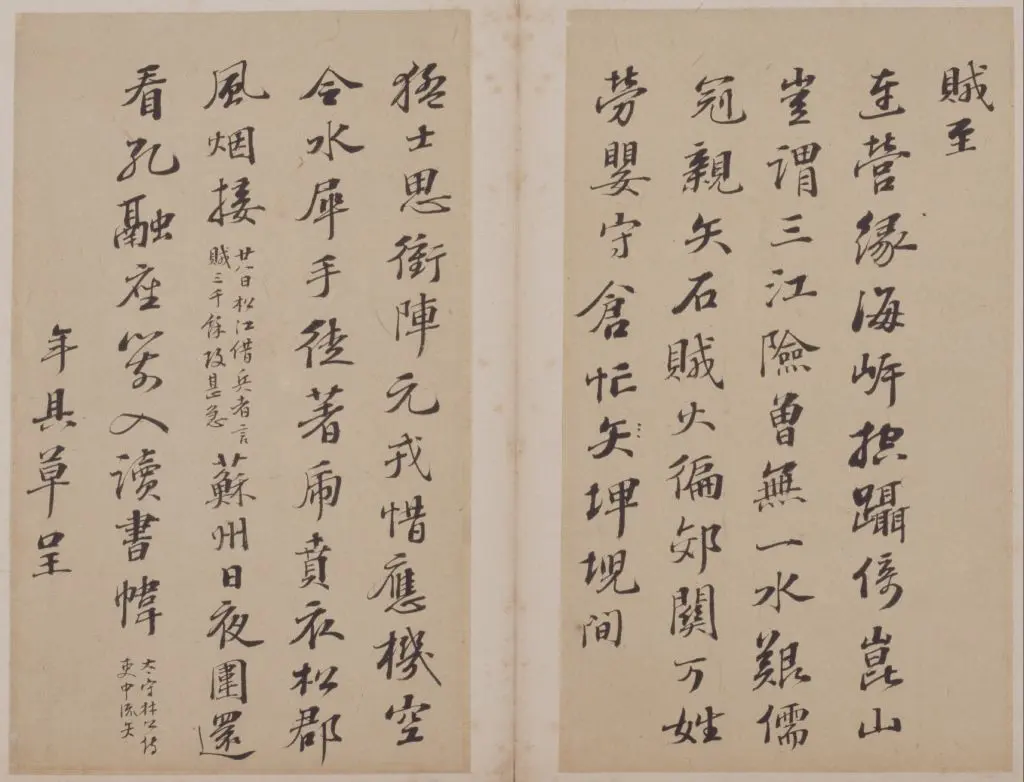 賊至
連營緣海岍躡傍崑山
豈謂三江險曾無一水艱儒
冠親矢石賊火徧郊關万姓
勞嬰守倉忙矢埤堄間
猛士思衝陣元戎惜應機空
令水犀手徒著虎賁衣松郡
風烟接
廿八日松江借兵者言
賊三千餘攻甚急
蘇州日夜圍還
看孔融座箭入讀書幃
太守林公侍
吏中流矢
年具草呈